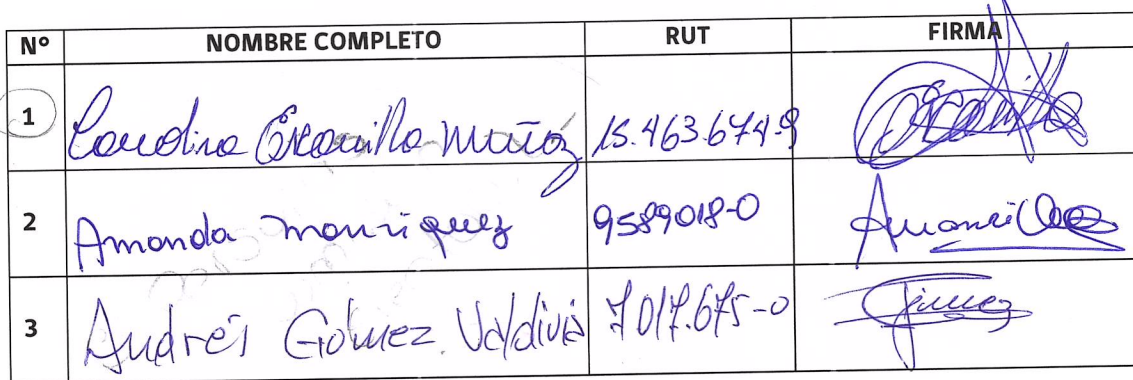 Nº NOMBRE COMPLETO RUT FIRMA
1 Carolina Escanilla Muñoz 15.463.674-9
2 Amanda Manriquez 9589018-0
3 Andrés Gómez Valdivia 7.017.675-0